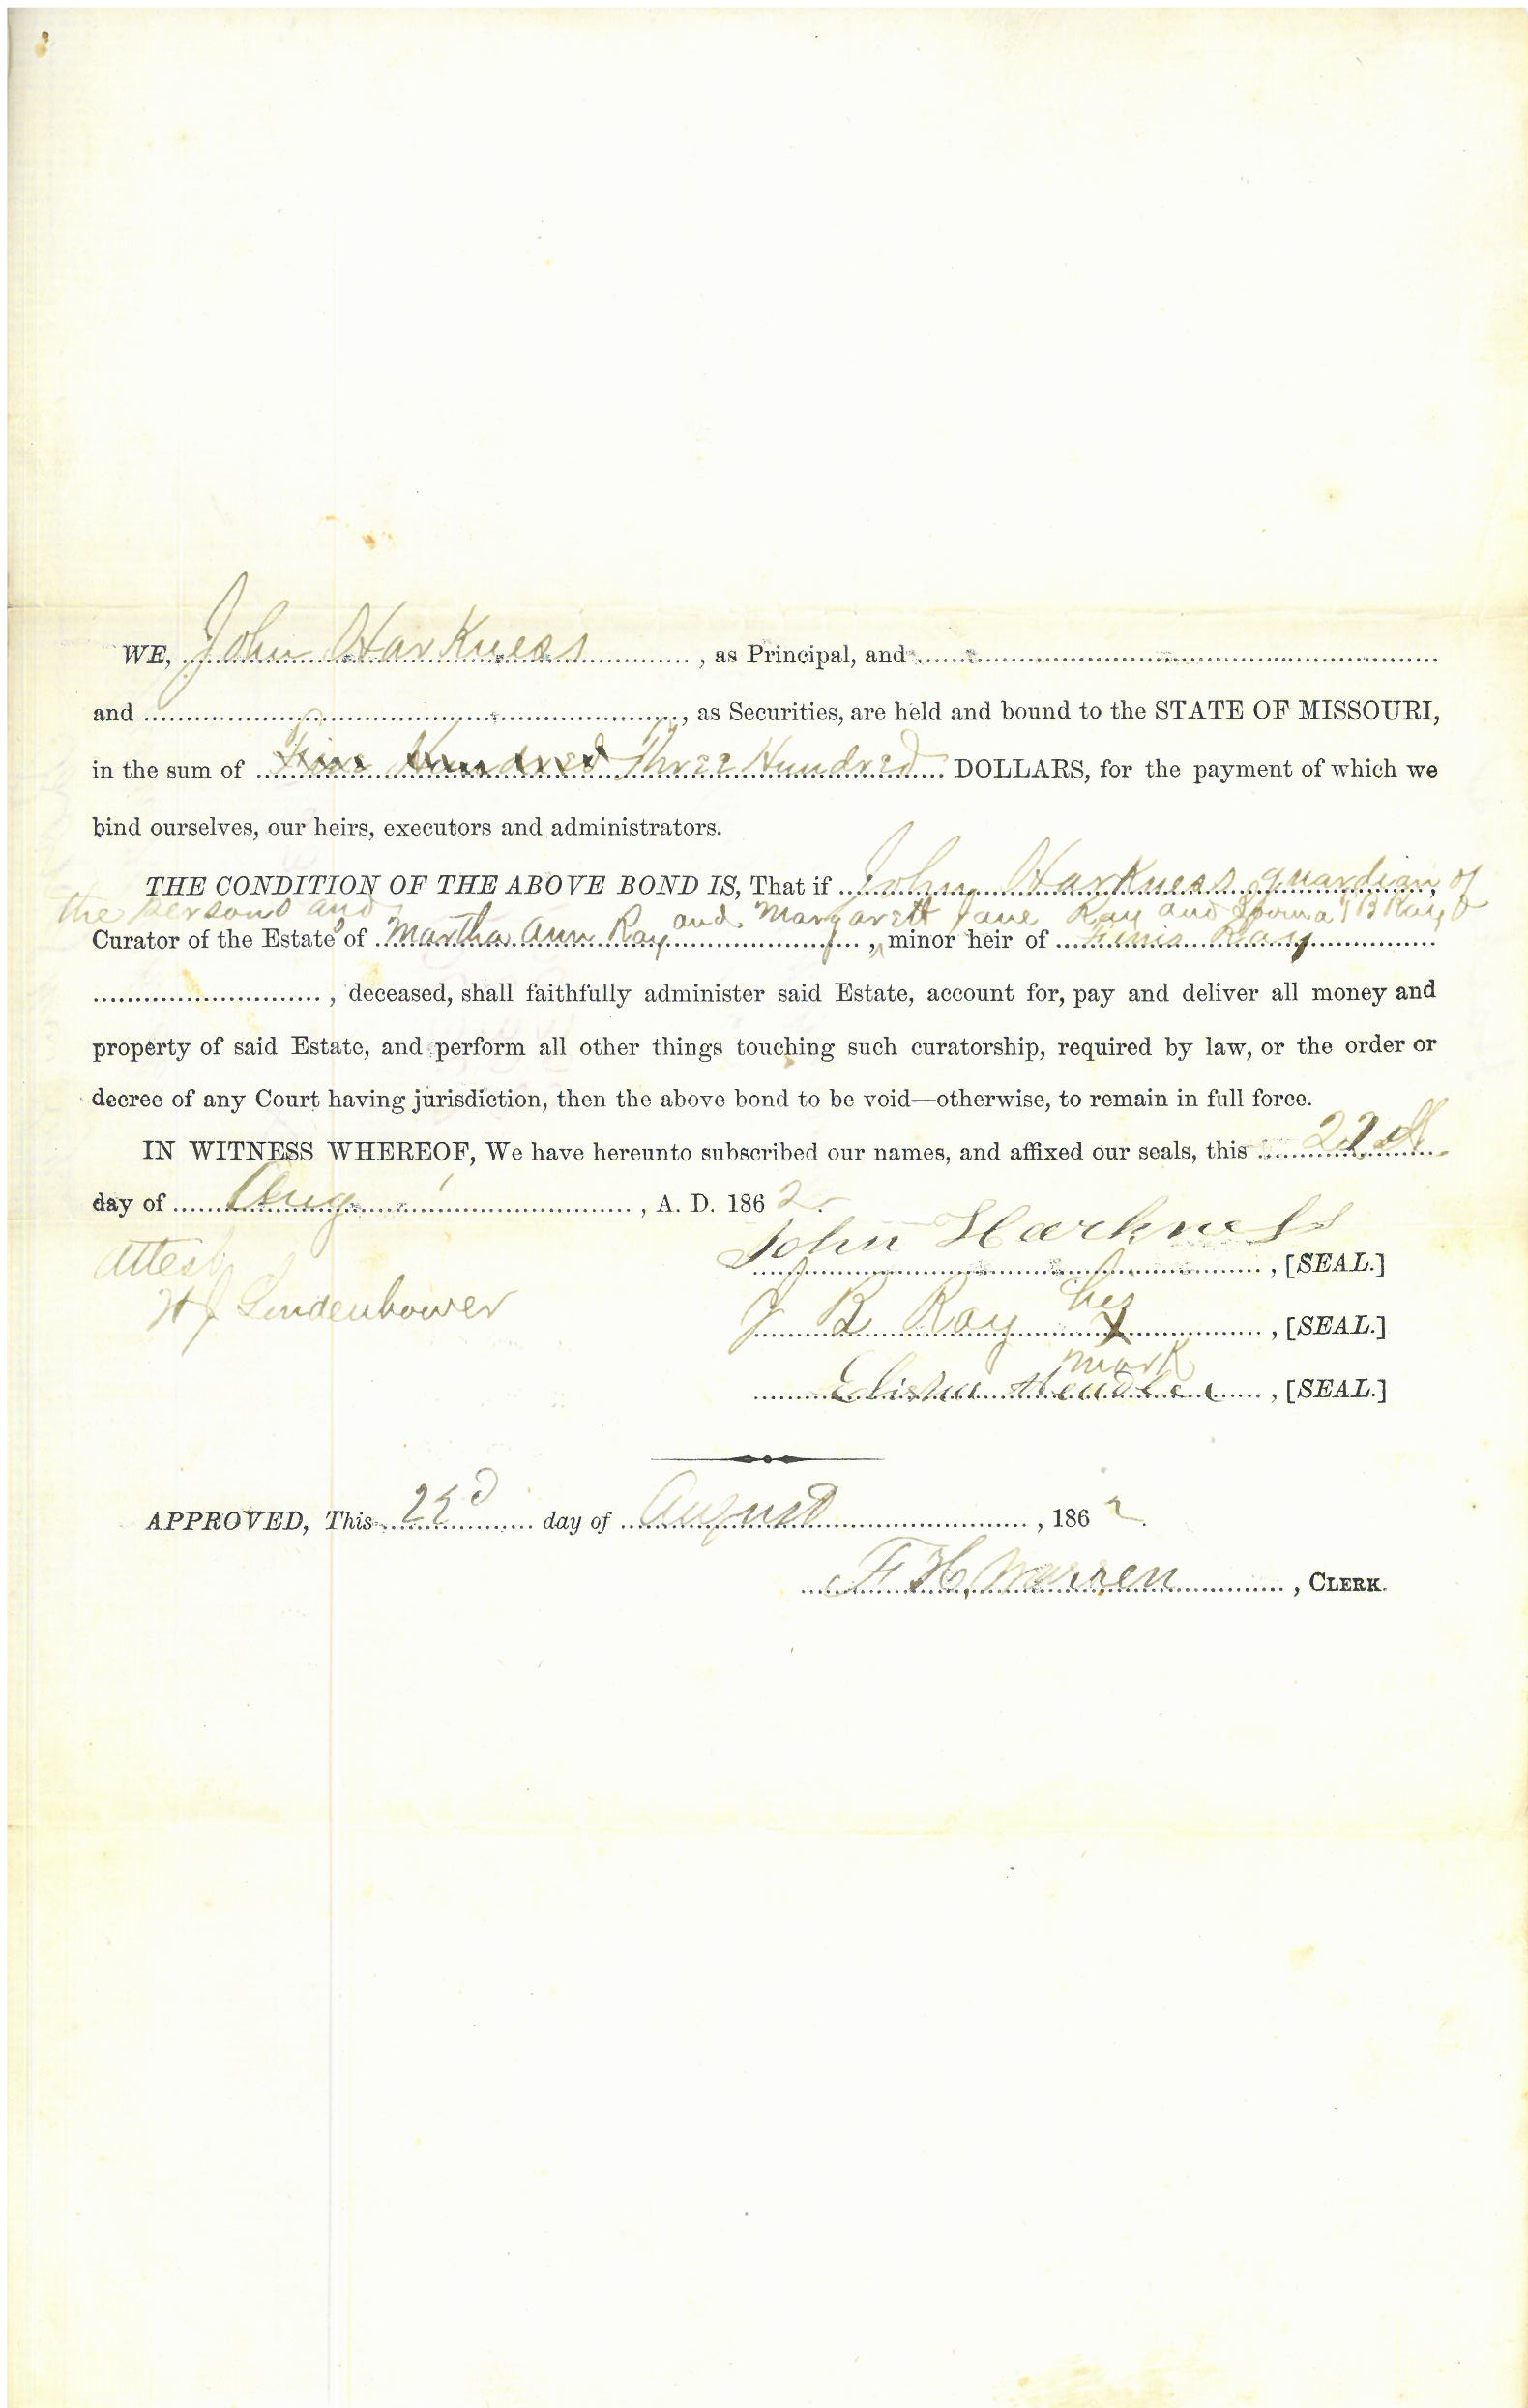 WE, John Harkness, as Principal, and
and, as Securities, are held and bound to the STATE OF MISSOURI,
in the sum of Five Hundred Three Hundred DOLLARS, for the payment of which we
bind ourselves, our heirs, executors and administrators.
THE CONDITION OF THE ABOVE BOND IS, That if John Harkness guardian, of
the persons and and Margarett Jane Ray and B Ray
Curator of the Estates of Martha Ann Ray, minor heir of Finis Ray
, deceased, shall faithfully administer said Estate, account for, pay and deliver all money and
property of said Estate, and perform all other things touching such curatorship, required by law, or the order or
decree of any Court having jurisdiction, then the above bond to be void—otherwise, to remain in full force.
IN WITNESS WHEREOF, We have hereunto subscribed our names, and affixed our seals, this 22d
day of Aug, A. D. 1862.
John Harkness, [SEAL.]
Attest
J B Ray his X mark, [SEAL.]
Lindenbower
Elisha, [SEAL.]
APPROVED, This 22d day of August, 1862.
F H, Warren, CLERK.